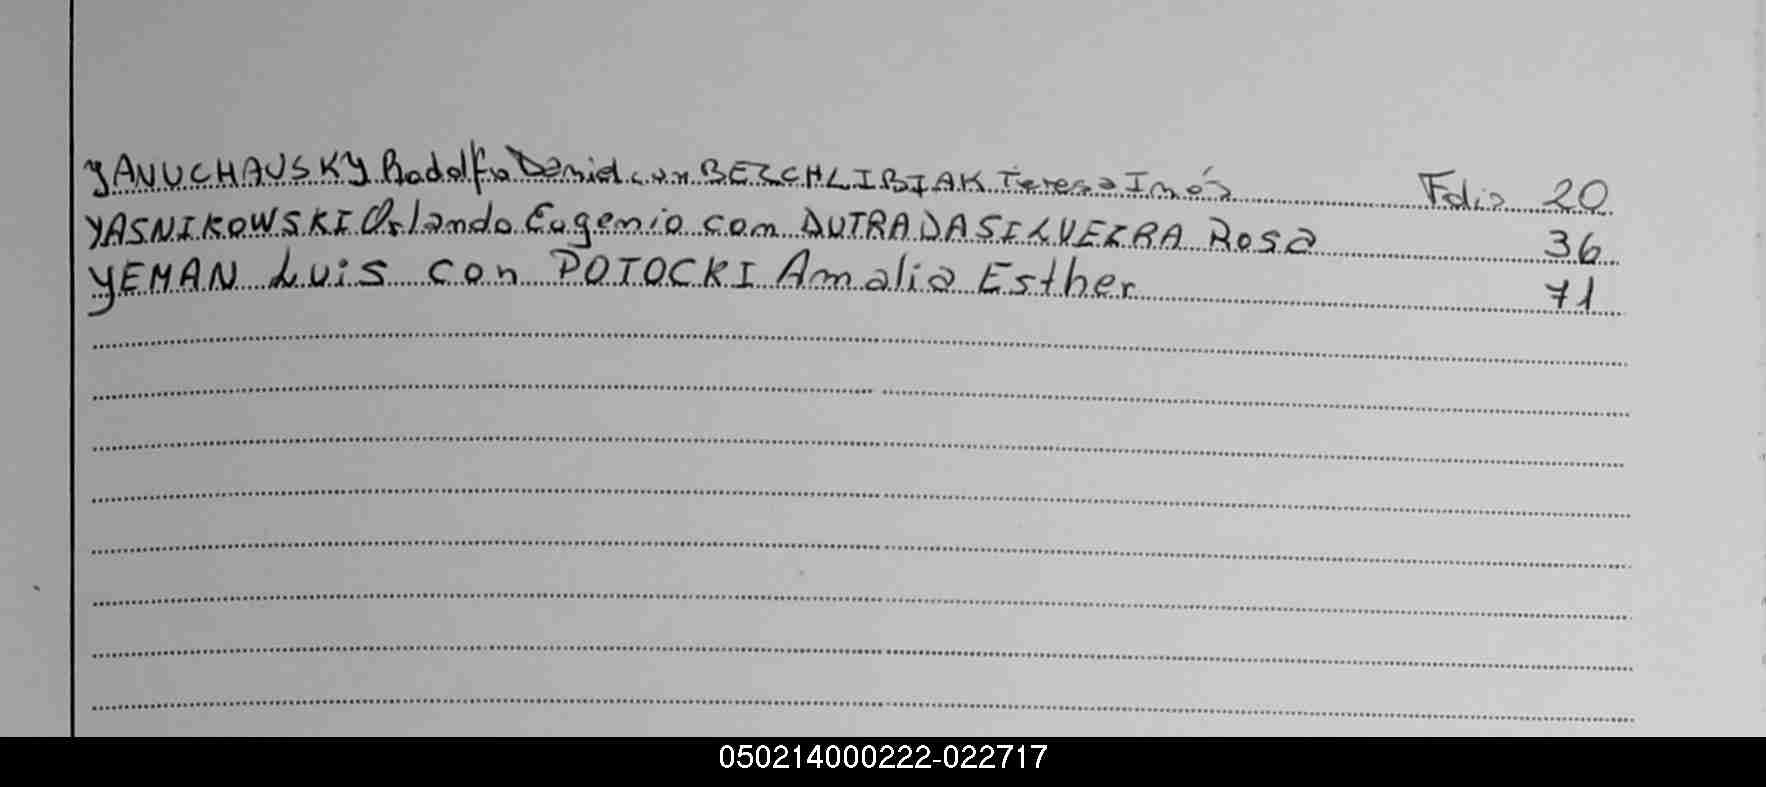 YANUCHAUSKY Rodolfo Daniel con BEZCHLIBIAK Teresa Inés Folio 20
YASNIKOWSKI Orlando Eugenio con DUTRA DA SILVEIRA Rosa 36
YEMAN Luis con POTOCKI Amalia Esther 71
050214000222-022717